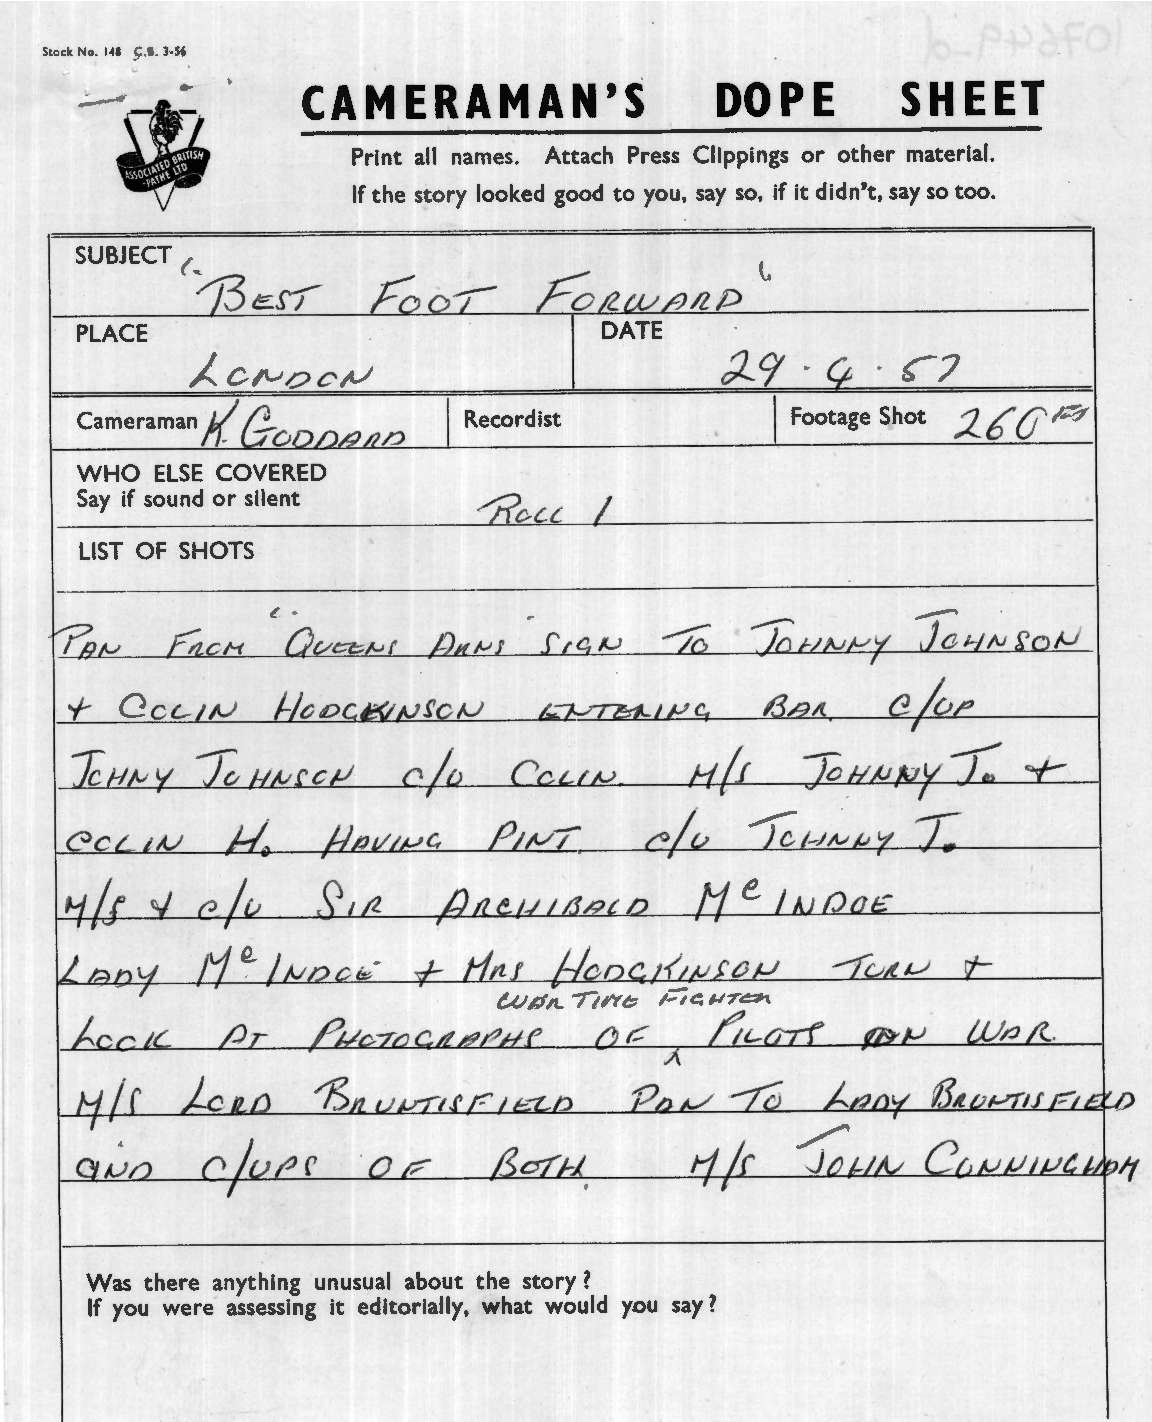 Stock No. 148 G.B. 3-56
CAMERAMAN'S DOPE SHEET
ASSOCIATED BRITISH
-PATHE LTD
Print all names. Attach Press Clippings or other material.
If the story looked good to you, say so, if it didn't, say so too.
SUBJECT
"BEST FOOT FORWARD"
PLACE DATE
LONDON 29.4.57
Cameraman K. GODDARD Recordist Footage Shot 260 FT
WHO ELSE COVERED
Say if sound or silent
ROLL 1
LIST OF SHOTS
PAN FROM "QUEENS ARMS" SIGN TO JOHNNY JOHNSON
+ COLIN HODGKINSON ENTERING BAR. C/UP
JOHNY JOHNSON C/U COLIN. M/S JOHNNY J. +
COLIN H. HAVING PINT. C/U JOHNNY J.
M/S + C/U SIR ARCHIBALD McINDOE
LADY McINDOE + MRS HODGKINSON TURN +
WAR TIME FIGHTER
LOOK AT PHOTOGRAPHS OF ^ PILOTS ON WAR.
M/S LORD BRUNTISFIELD PAN TO LADY BRUNTISFIELD
AND C/UPS OF BOTH. M/S JOHN CUNNINGHAM
Was there anything unusual about the story?
If you were assessing it editorially, what would you say?